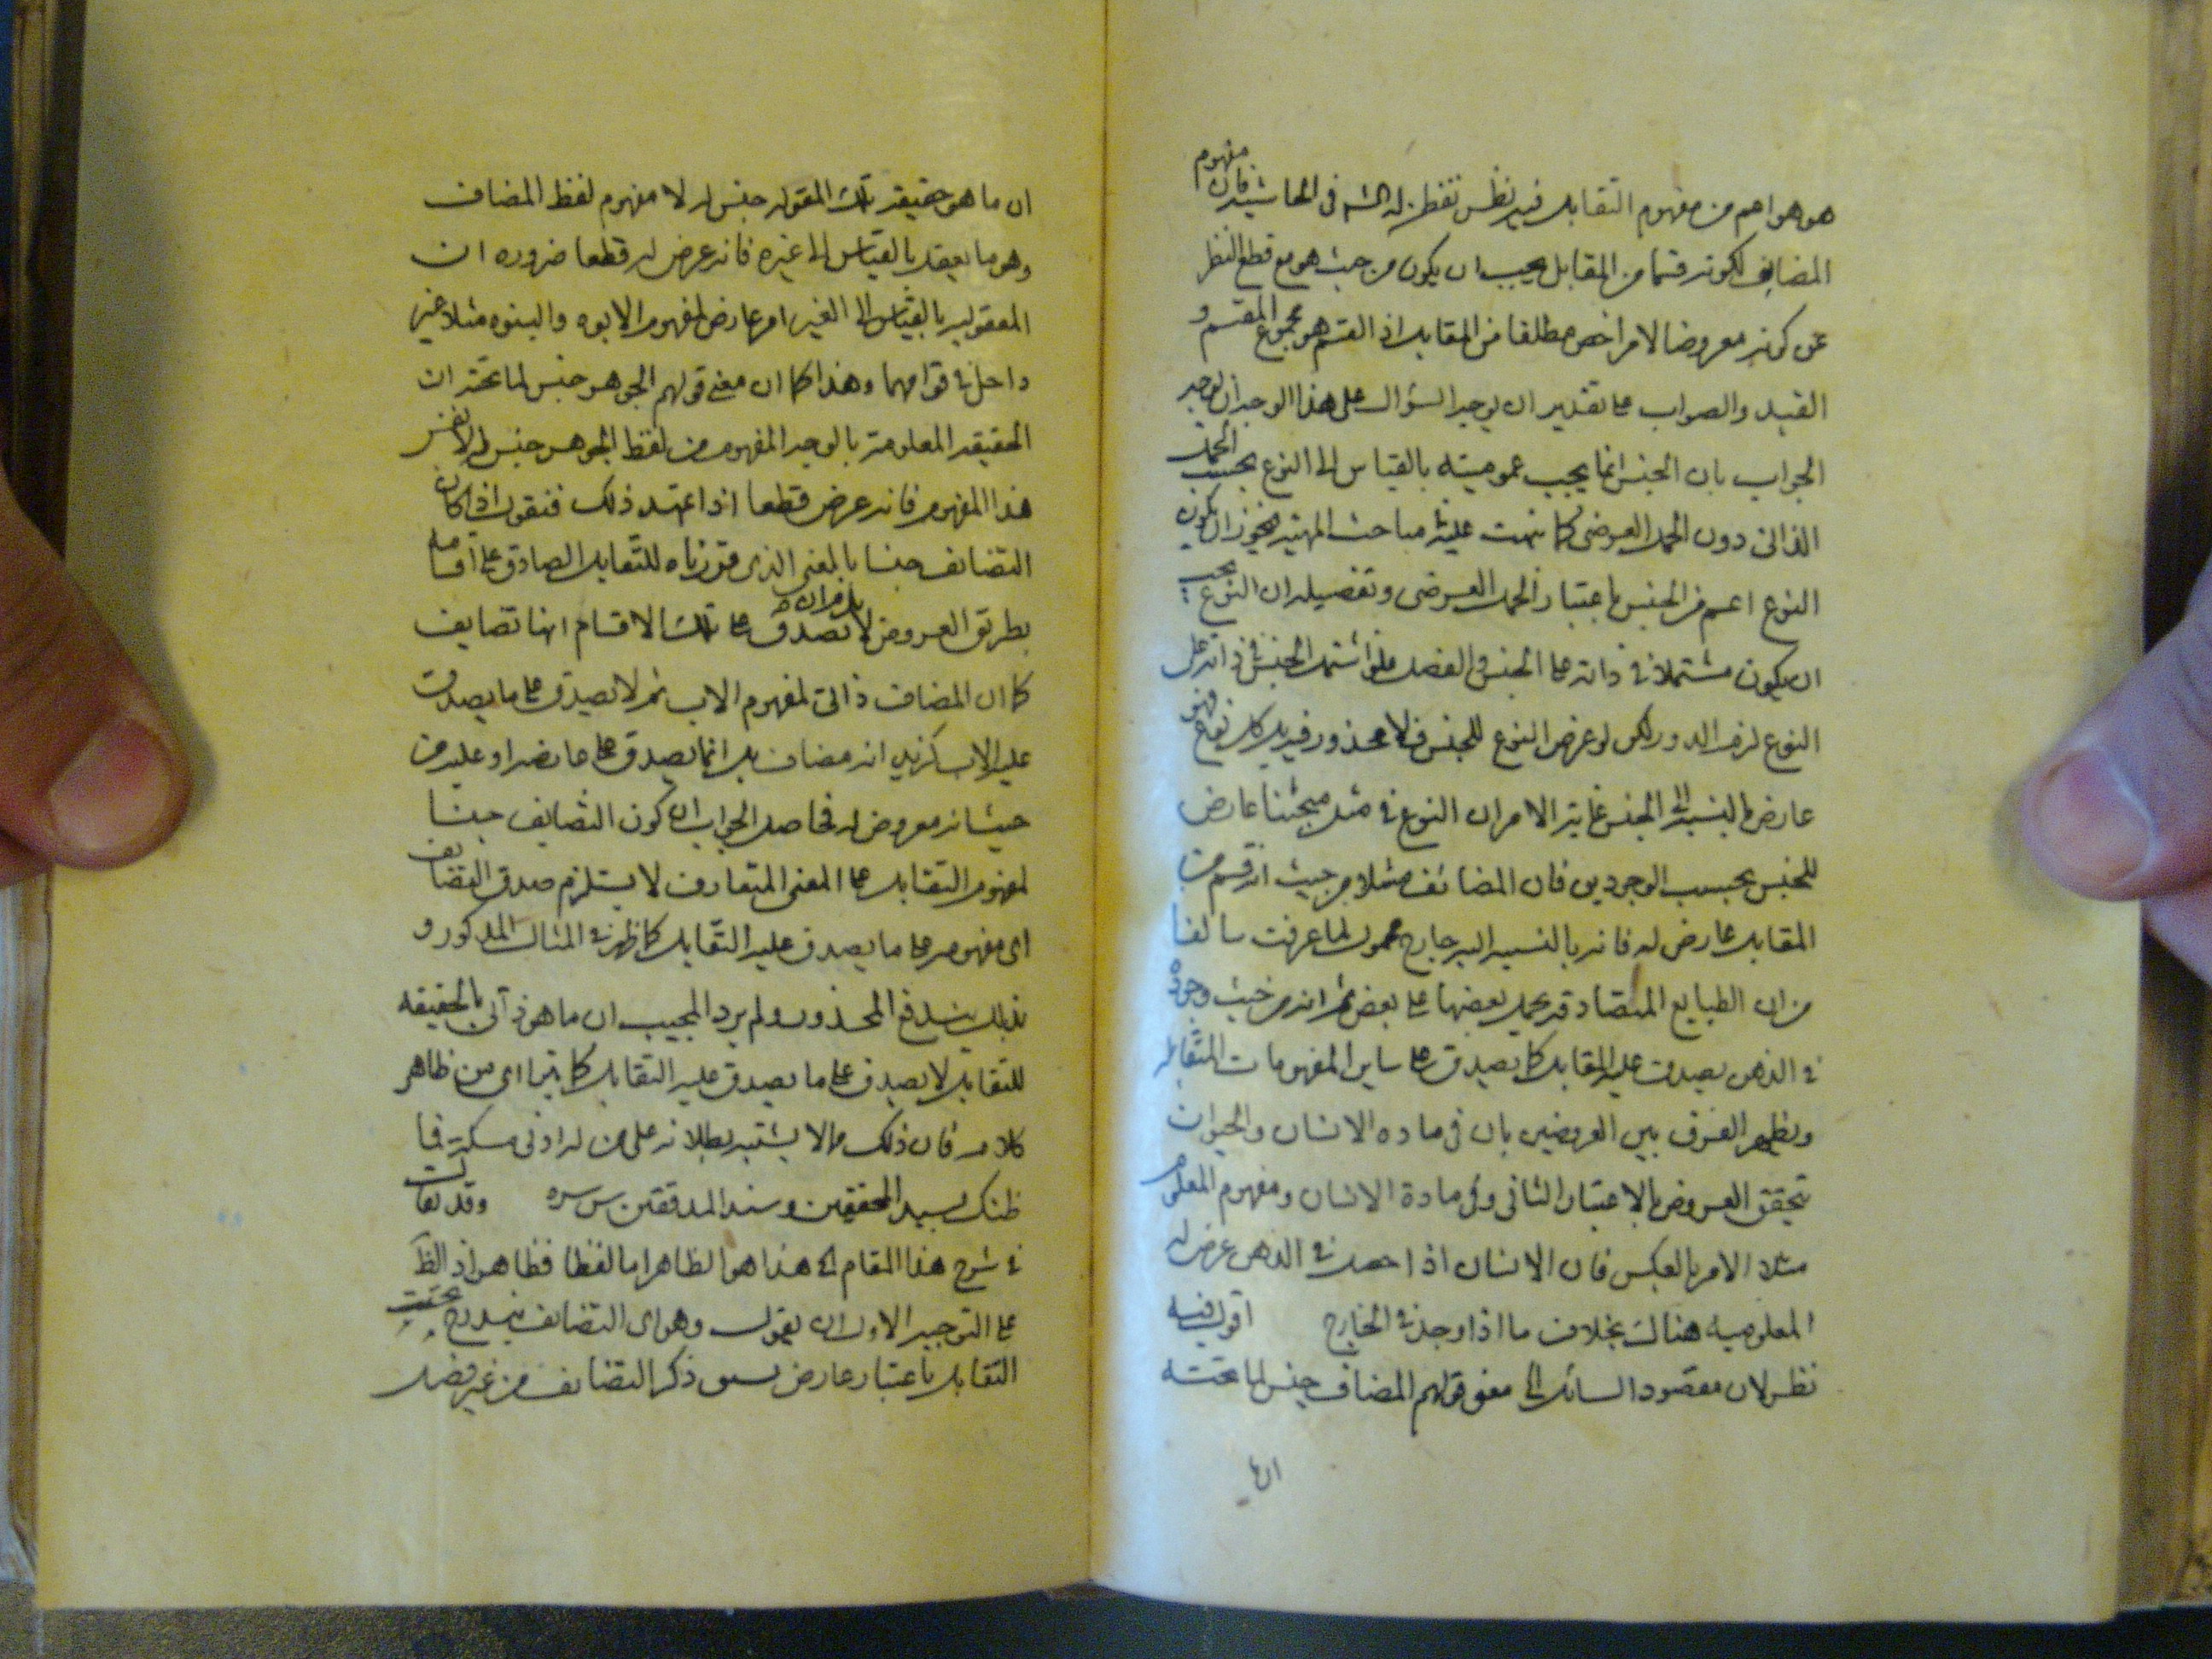 هو هو اعم من مفهوم التقابل فيه نظر تفطن له الشه في الحاشيه فان مفهوم
المضايف لكونه قسما من المقابل يجب ان يكون من حيث هو مع قطع النظر
عن كونه معروضا لامر اخص مطلقا من المقابل اذ القسم هو مجموع المقسم و
القيد والصواب على تقدير ان يوجه السؤال على هذا الوجه ان يوجه
الجواب بان الجنس انما يجب عموميته بالقياس الى النوع بحسب الحمل
الذاتى دون الحمل العرضى كما نبهت عليه في مباحث المهيه فيجوز ان يكون
النوع اعم من الجنس باعتبار الحمل العرضى وتفصيله ان النوع يجب
ان يكون مشتملا في ذاته على الجنس والفصل فلو اشتمل الجنس في ذاته على
النوع لزم الدور لكن لو عرض النوع للجنس فلا محذور فيه بل كل نوع فهو
عارض بالنسبه الى الجنس غايه الامر ان النوع في مثل مبحثنا عارض
للجنس بحسب الوجودين فان المضائف مثلا من حيث انه قسم من
المقابل عارض له فانه بالنسبه اليه خارج محمول لما عرفت سالفا
من ان الطبايع المتصادقه يحمل بعضها على بعض ثم انه من حيث وجوده
في الذهن يصدق عليه المقابل كما يصدق على ساير المفهومات المتقابله
ويظهر الفرق بين العروضين بان في ماده الانسان والحيوان
تحقق العروض بالاعتبار الثانى وفي مادة الانسان ومفهوم المعلوم
مثلا الامر بالعكس فان الانسان اذا حصل في الذهن عرض له
المعلوميه هناك بخلاف ما اذا وجد في الخارج اقول فيه
نظر لان مقصود السائل الى معنى قولهم المضاف جنس لما تحته
ان ما هو حقيقه تلك المقوله جنس له لا مفهوم لفظ المضاف
وهو ما يعقل بالقياس الى غيره فانه عرض له قطعا ضروره ان
المعقوليه بالقياس الى الغير امر عارض لمفهوم الابوه والبنوه مثلا غير
داخل في قوامهما وهذا كما ان معنى قولهم الجوهر جنس لما تحته ان
الحقيقه المعلومة بالوجه المفهوم من لفظ الجوهر جنس له لا نفس
هذا المفهوم فانه عرض قطعا اذا تمهد ذلك فنقول اذا كان
التضائف جنسا بالمعنى الذى قررناه للتقابل الصادق على اقسامه
بطريق العروض لا يلزم ان يصدق على تلك الاقسام انها تضايف
كما ان المضاف ذاتى لمفهوم الاب ثم لا يصدق على ما يصدق
عليه الاب كزيد انه مضاف بل انما يصدق على عارضه او عليه من
حيث انه معروض له فحاصل الجواب ان كون التضايف جنسا
لمفهوم التقابل على المعنى المتعارف لا يستلزم صدق التضايف
اى مفهومه على ما يصدق عليه التقابل كما ظهر في المثال المذكور و
بذلك يندفع المحذور ولم يرد المجيب ان ما هو ذاتى بالحقيقه
للتقابل لا يصدق على ما يصدق عليه التقابل كما يترااى من ظاهر
كلامه فان ذلك مما لا يشتبه بطلانه على من له ادنى مسكة فما
ظنك بسيد المحققين وسند المدققين س سره وقد يقال
في شرح هذا المقام الى هذا هو الظاهر اما لفظا فظاهر اذ الظ
على التوجيه الاول ان يقول وهو اى التضائف يندرج تحت
التقابل باعتبار عارض لسبق ذكر التضائف من غير فصل